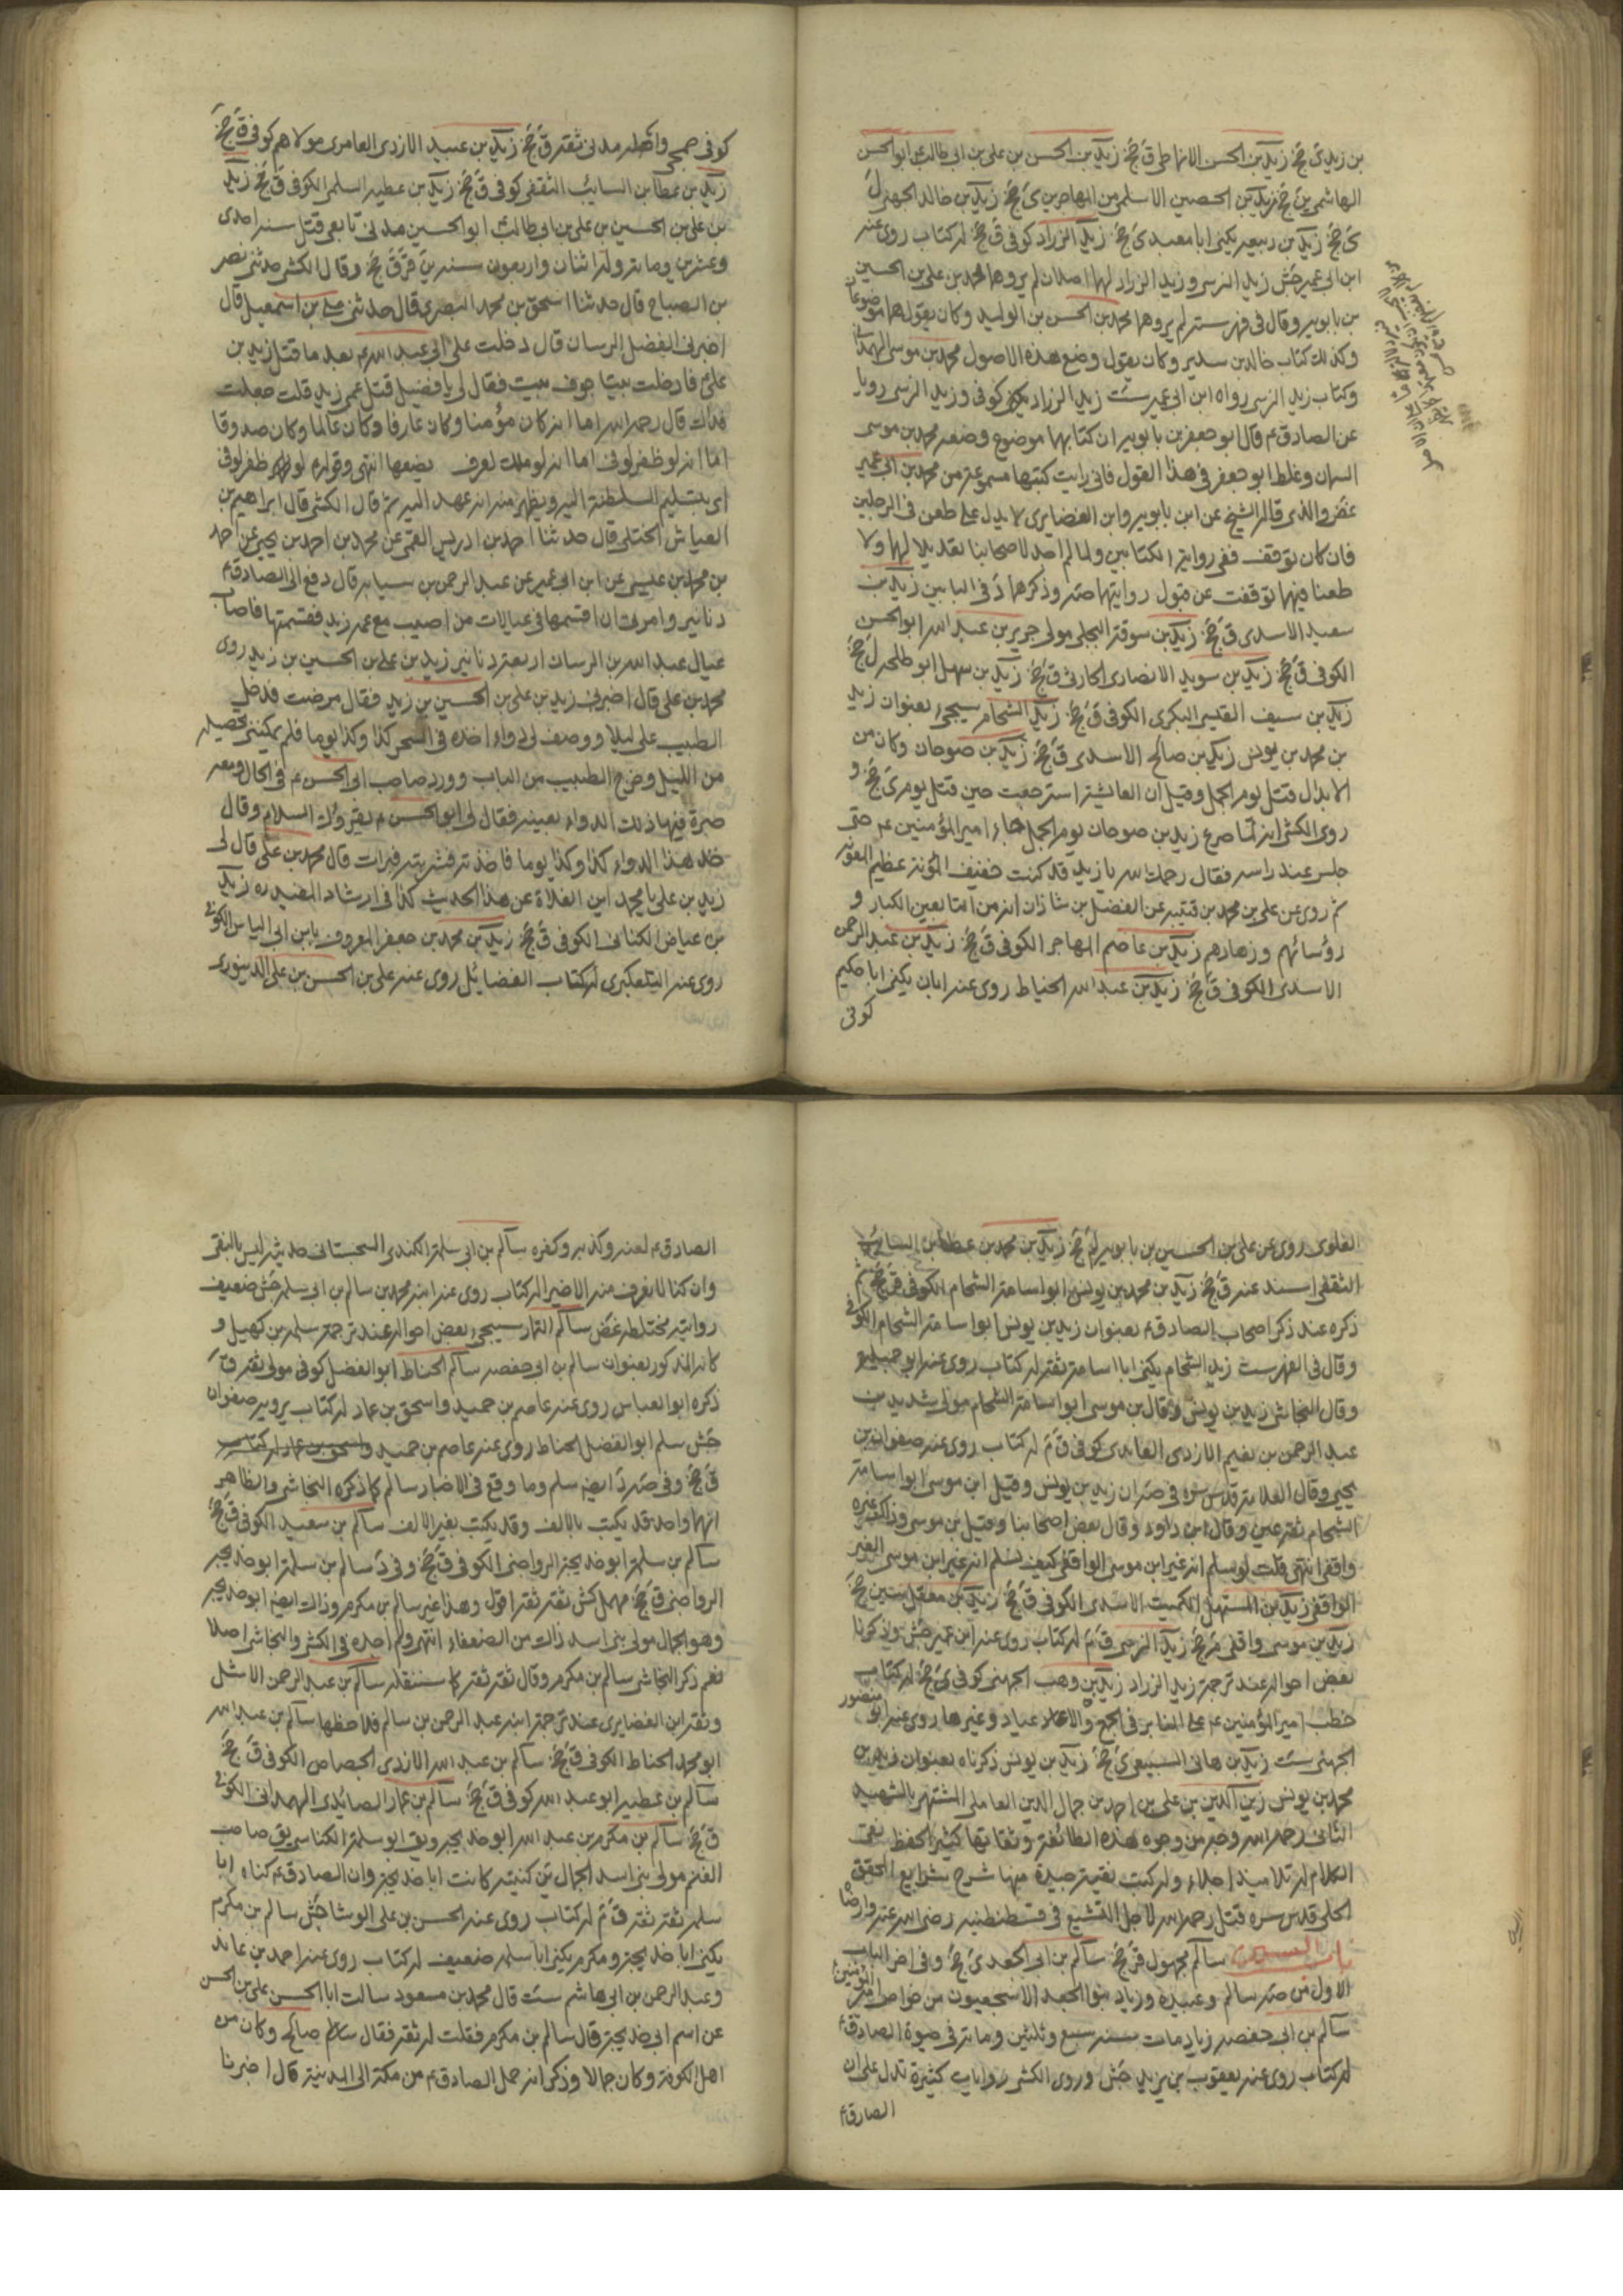 بن زيد ى جخ زيد بن الحسن الانماطى ق جخ زيد بن الحسن بن على بن ابى طالب ع ابو الحسن
الهاشمى ين جخ زيد بن الحصين الاسلمى من المهاجرين ى جخ زيد بن خالد الجهنى ل
ى جخ زيد بن ربيعه يكنى ابا معبد ى جخ زيد الزراد كوفى ق جخ له كتاب روى عنه
ابن ابى عمير جش زيد النرسى وزيد الزراد لهما اصلان لم يروهما محمد بن على بن الحسين
بن بابويه وقال فى فهرسته لم يروهما محمد بن الحسن بن الوليد وكان يقول هما موضوعان
وكذلك كتاب خالد بن سدير وكان يقول وضع هذه الاصول محمد بن موسى الهمدانى
وكتاب زيد النرسى رواه ابن ابى عمير ست زيد الزراد كوفى وزيد النرسى رويا
عن الصادق ع قال ابو جعفر بن بابويه ان كتابهما موضوع وضعه محمد بن موسى
السمان وغلط ابو جعفر فى هذا القول فانى رايت كتبهما مسموعة من محمد بن ابى عمير
غض والذى قاله الشيخ عن ابن بابويه وابن الغضايرى لا يدل على طعن فى الرجلين
فان كان توقف ففى رواية الكتابين ولما لم اجد لاصحابنا تعديلا لهما ولا
طعنا فيهما توقفت عن قبول روايتهما صه وذكرهما د فى البابين زيد بن
سعيد الاسدى ق جخ زيد بن سوقة البجلى مولى جرير بن عبد الله ابو الحسن
الكوفى ق جخ زيد بن سويد الانصارى الحارثى ق جخ زيد بن سهل ابو طلحه ل جخ
زيد بن سيف القيسى البكرى الكوفى ق جخ زيد الشحام سيجىء بعنوان زيد
بن محمد بن يونس زيد بن صالح الاسدى ق جخ زيد بن صوحان وكان من
الابدال قتل يوم الجمل وقيل ان العائشة استرجعت حين قتل يوم ى جخ و
روى الكشى انه لما صرع زيد بن صوحان يوم الجمل جاء امير المؤمنين ع حتى
جلس عند راسه فقال رحمك الله يا زيد قد كنت خفيف المؤنة عظيم المعونة
ثم روى عن على بن محمد بن قتيبه عن الفضل بن شاذان انه من التابعين الكبار و
رؤسائهم وزهادهم زيد بن عاصم المهاجر الكوفى ق جخ زيد بن عبد الرحمن
الاسدى الكوفى ق جخ زيد بن عبد الله الحناط روى عنه ابان يكنى ابا حكيم
كوفى
كوفى جمحى واصله مدنى ثقه ق جخ زيد بن عبيد الازدى العامرى مولاهم كوفى ق جخ
زيد بن عطا بن السايب الثقفى كوفى ق جخ زيد بن عطيه السلمى الكوفى ق جخ زيد
بن على بن الحسين بن على بن ابى طالب ابو الحسين مدنى تابعى قتل سنه احدى
وعشرين ومائة وله اثنان واربعون سنه ين قر ق جخ وقال الكشى حدثنى نصر
بن الصباح قال حدثنا اسحق بن محمد البصرى قال حدثنى على بن اسمعيل قال
اخبرنى الفضيل الرسان قال دخلت على ابى عبد الله ع بعد ما قتل زيد بن
على ع فادخلت بيتا جوف بيت فقال لى يا فضيل قتل عمى زيد قلت جعلت
فداك قال رحمه الله اما انه كان مؤمنا وكان عارفا وكان عالما وكان صدوقا
اما انه لو ظفر لوفى اما انه لو ملك لعرف يضعها انتهى وقوله ع لو ظفر لوفى
اى بتسليم السلطنة اليه ويظهر منه انه عهد اليه ثم قال الكشى قال ابراهيم بن
العباس الختلى قال حدثنا احمد بن ادريس القمى عن محمد بن احمد بن يحيى عن احمد
بن محمد بن عيسى عن ابن ابى عمير عن عبد الرحمن بن سيابه قال دفع الى الصادق ع
دنانير وامرنى ان اقسمها فى عيالات من اصيب مع عمه زيد فقسمتها فاصاب
عيال عبد الله بن الرسان اربعة دنانير زيد بن على بن الحسين بن زيد روى
محمد بن على قال اخبرنى زيد بن على بن الحسين بن زيد فقال مرضت فدخل
الطبيب على ليلا ووصف لى دواء اخذه فى السحر كذا وكذا يوما فلم يمكننى تحصيله
من الليل وخرج الطبيب من الباب وورد صاحب ابى الحسن ع فى الحال ومعه
صرة فيها ذلك الدواء بعينه فقال لى ابو الحسن ع يقرؤك السلام وقال
خذ هذا الدواء كذا وكذا يوما فاخذته فشربته فبرات قال محمد بن على قال لى
زيد بن على يا محمد اين الغلاة عن هذا الحديث كذا فى ارشاد المفيد ره زيد
بن عياض الكنانى الكوفى ق جخ زيد بن محمد بن جعفر المعروف بابن ابى الياس الكوفى
روى عنه التلعكبرى له كتاب الفضائل روى عنه على بن الحسن بن على الدينورى
العلوى روى عن على بن الحسين بن بابويه لم جخ زيد بن محمد بن عطا بن السائب
الثقفى اسند عنه ق جخ زيد بن محمد بن يونس ابو اسامة الشحام الكوفى قر جخ ثم
ذكره عند ذكر اصحاب الصادق ع بعنوان زيد بن يونس ابو اسامة الشحام الكوفى
وقال فى الفهرست زيد الشحام يكنى ابا اسامة ثقه له كتاب روى عنه ابو جميله
وقال النجاشى زيد بن يونس وقال بن موسى ابو اسامة الشحام مولى شديد بن
عبد الرحمن بن نعيم الازدى الغامدى كوفى ق م له كتاب روى عنه صفوان بن
يحيى وقال العلامه قدس سره فى صه ان زيد بن يونس وقيل ابن موسى ابو اسامة
الشحام ثقه عين وقال ابن داود وقال بعض اصحابنا وقيل بن موسى وذاك غيره
واقفى انتهى قلت لو سلم انه غير ابن موسى الواقفى كيف نسلم انه غير ابن موسى الغير
الواقفى زيد بن المستهل الكميت الاسدى الكوفى ق جخ زيد بن معقل سين جخ
زيد بن موسى واقفى م جخ زيد النرسى ق م له كتاب روى عنه ابن ابى عمير جش وذكرنا
بعض احواله عند ترجمة زيد الزراد زيد بن وهب الجهنى كوفى ى جخ له كتاب
خطب امير المؤمنين ع على المنابر فى الجمع والاعياد وغيرها روى عنه ابو منصور
الجهنى ست زيد بن هانى السبيعى ى جخ زيد بن يونس ذكرناه بعنوان زيد بن
محمد بن يونس زين الدين بن على بن احمد بن جمال الدين العاملى المشتهر بالشهيد
الثانى رحمه الله وجه من وجوه هذه الطائفة وثقاتها كثير الحفظ نقى
الكلام له تلاميذ اجلاء وله كتب نفيسة جيدة منها شرح شرايع المحقق
الحلى قدس سره قتل رحمه الله لاجل التشيع فى قسطنطنيه رضى الله عنه وارضاه
باب السين سالم مجهول قر جخ سالم بن ابى الجعد ى جخ وفى اخر الباب
الاول من صه سالم وعبيده وزياد بنو الجعد الاشجعيون من خواص امير المؤمنين ع
سالم بن ابى حفصه زياد مات سنه سبع وثلثين ومائة فى حيوة الصادق ع
له كتاب روى عنه يعقوب بن يزيد جش وروى الكشى روايات كثيرة تدل على ان
الصادق ع
الصادق ع لعنه وكذبه وكفره سالم بن ابى سلمة الكندى السجستانى حديثه ليس بالنقى
وان كنا لا نعرف منه الا خيرا له كتاب روى عنه ابنه محمد بن سالم بن ابى سلمه جش ضعيف
روايته مختلطه غض سالم التمار سيجىء بعض احواله عند ترجمة سلمه بن كهيل و
كانه المذكور بعنوان سالم بن ابى حفصه سالم الحناط ابو الفضل كوفى مولى ثقه ق
ذكره ابو العباس روى عنه عاصم بن حميد واسحق بن عمار له كتاب يرويه صفوان
جش سلم ابو الفضل الحناط روى عنه عاصم بن حميد واسحق بن عمار له كتاب
ق جخ وفى صه د ايضا سلم وما وقع فى الاخبار سالم كما ذكره النجاشى والظاهر
انهما واحد قد يكتب بالالف وقد يكتب بغير الالف سالم بن سعيد الكوفى ق جخ
سالم بن سلمة ابو خديجة الرواجنى الكوفى ق جخ وفى د سالم بن سلمة ابو خديجه
الرواجنى ق جخ مهمل كش ثقه ثقه اقول وهذا غير سالم بن مكرم وذاك ايضا ابو خديجه
وهو الجمال مولى بنى اسد ذاك من الضعفاء انتهى ولم اجده فى الكشى والنجاشى اصلا
نعم ذكر النجاشى سالم بن مكرم وقال ثقه ثقه كما سننقله سالم بن عبد الرحمن الاشل
وثقه ابن الغضايرى عند ترجمة ابنه عبد الرحمن بن سالم فلاحظها سالم بن عبد الله
ابو محمد الحناط الكوفى ق جخ سالم بن عبد الله الازدى الجصاص الكوفى ق جخ
سالم بن عطيه ابو عبد الله كوفى ق جخ سالم بن عمار الصائدى الهمدانى الكوفى
ق جخ سالم بن مكرم بن عبد الله ابو خديجه ويق ابو سلمة الكناسى يق صاحب
الغنم مولى بنى اسد الجمال يق كنيته كانت ابا خديجة وان الصادق ع كناه ابا
سلمه ثقه ثقه ق م له كتاب روى عنه الحسن بن على الوشا جش سالم بن مكرم
يكنى ابا خديجه ومكرم يكنى ابا سلمه ضعيف له كتاب روى عنه احمد بن عائذ
وعبد الرحمن بن ابى هاشم ست قال محمد بن مسعود سالت ابا الحسن على بن الحسن
عن اسم ابى خديجة قال سالم بن مكرم فقلت له ثقه فقال سالم صالح وكان من
اهل الكوفة وكان جمالا وذكر انه حمل الصادق ع من مكة الى المدينة قال اخبرنا